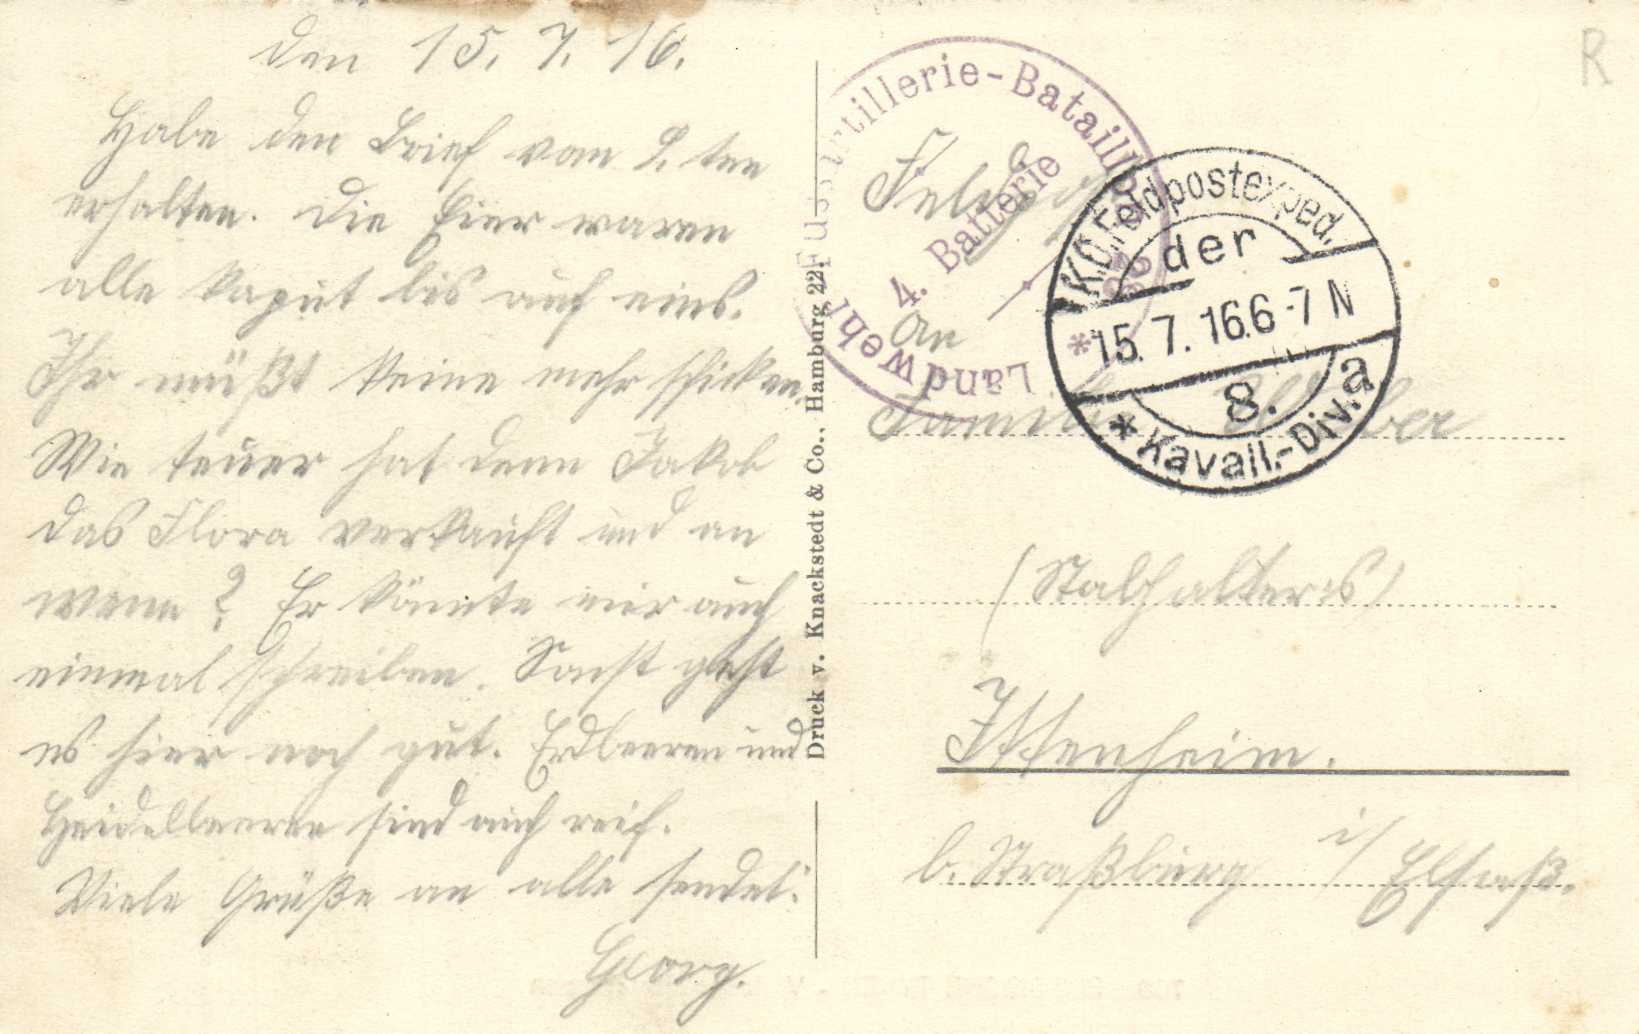 den 15. 7. 16.
Habe den Brief vom 9. ten
erhalten. Die Eier waren
alle kaput bis auf eins.
Ihr müßt keine mehr schicken.
Wie teuer hat denn Jakob
das Flora verkauft und an
wenn? Er könnte mir auch
einmal schreiben. Sonst geht
es hier noch gut. Erdbeeren und
Heidelbeeren sind auch reif.
Viele Grüße an alle sendet:
Georg.
Druck v. Knackstedt & Co., Hamburg 22.
Landwehr Fussartillerie-Bataillon
4. Batterie
K.D. Feldpostexped.
der
15. 7. 16 6-7 N
8.
* Kavall.-Div. a
R
An
Familie
(Stalhalters)
Ittenheim.
b. Straßburg i/ Elsaß.